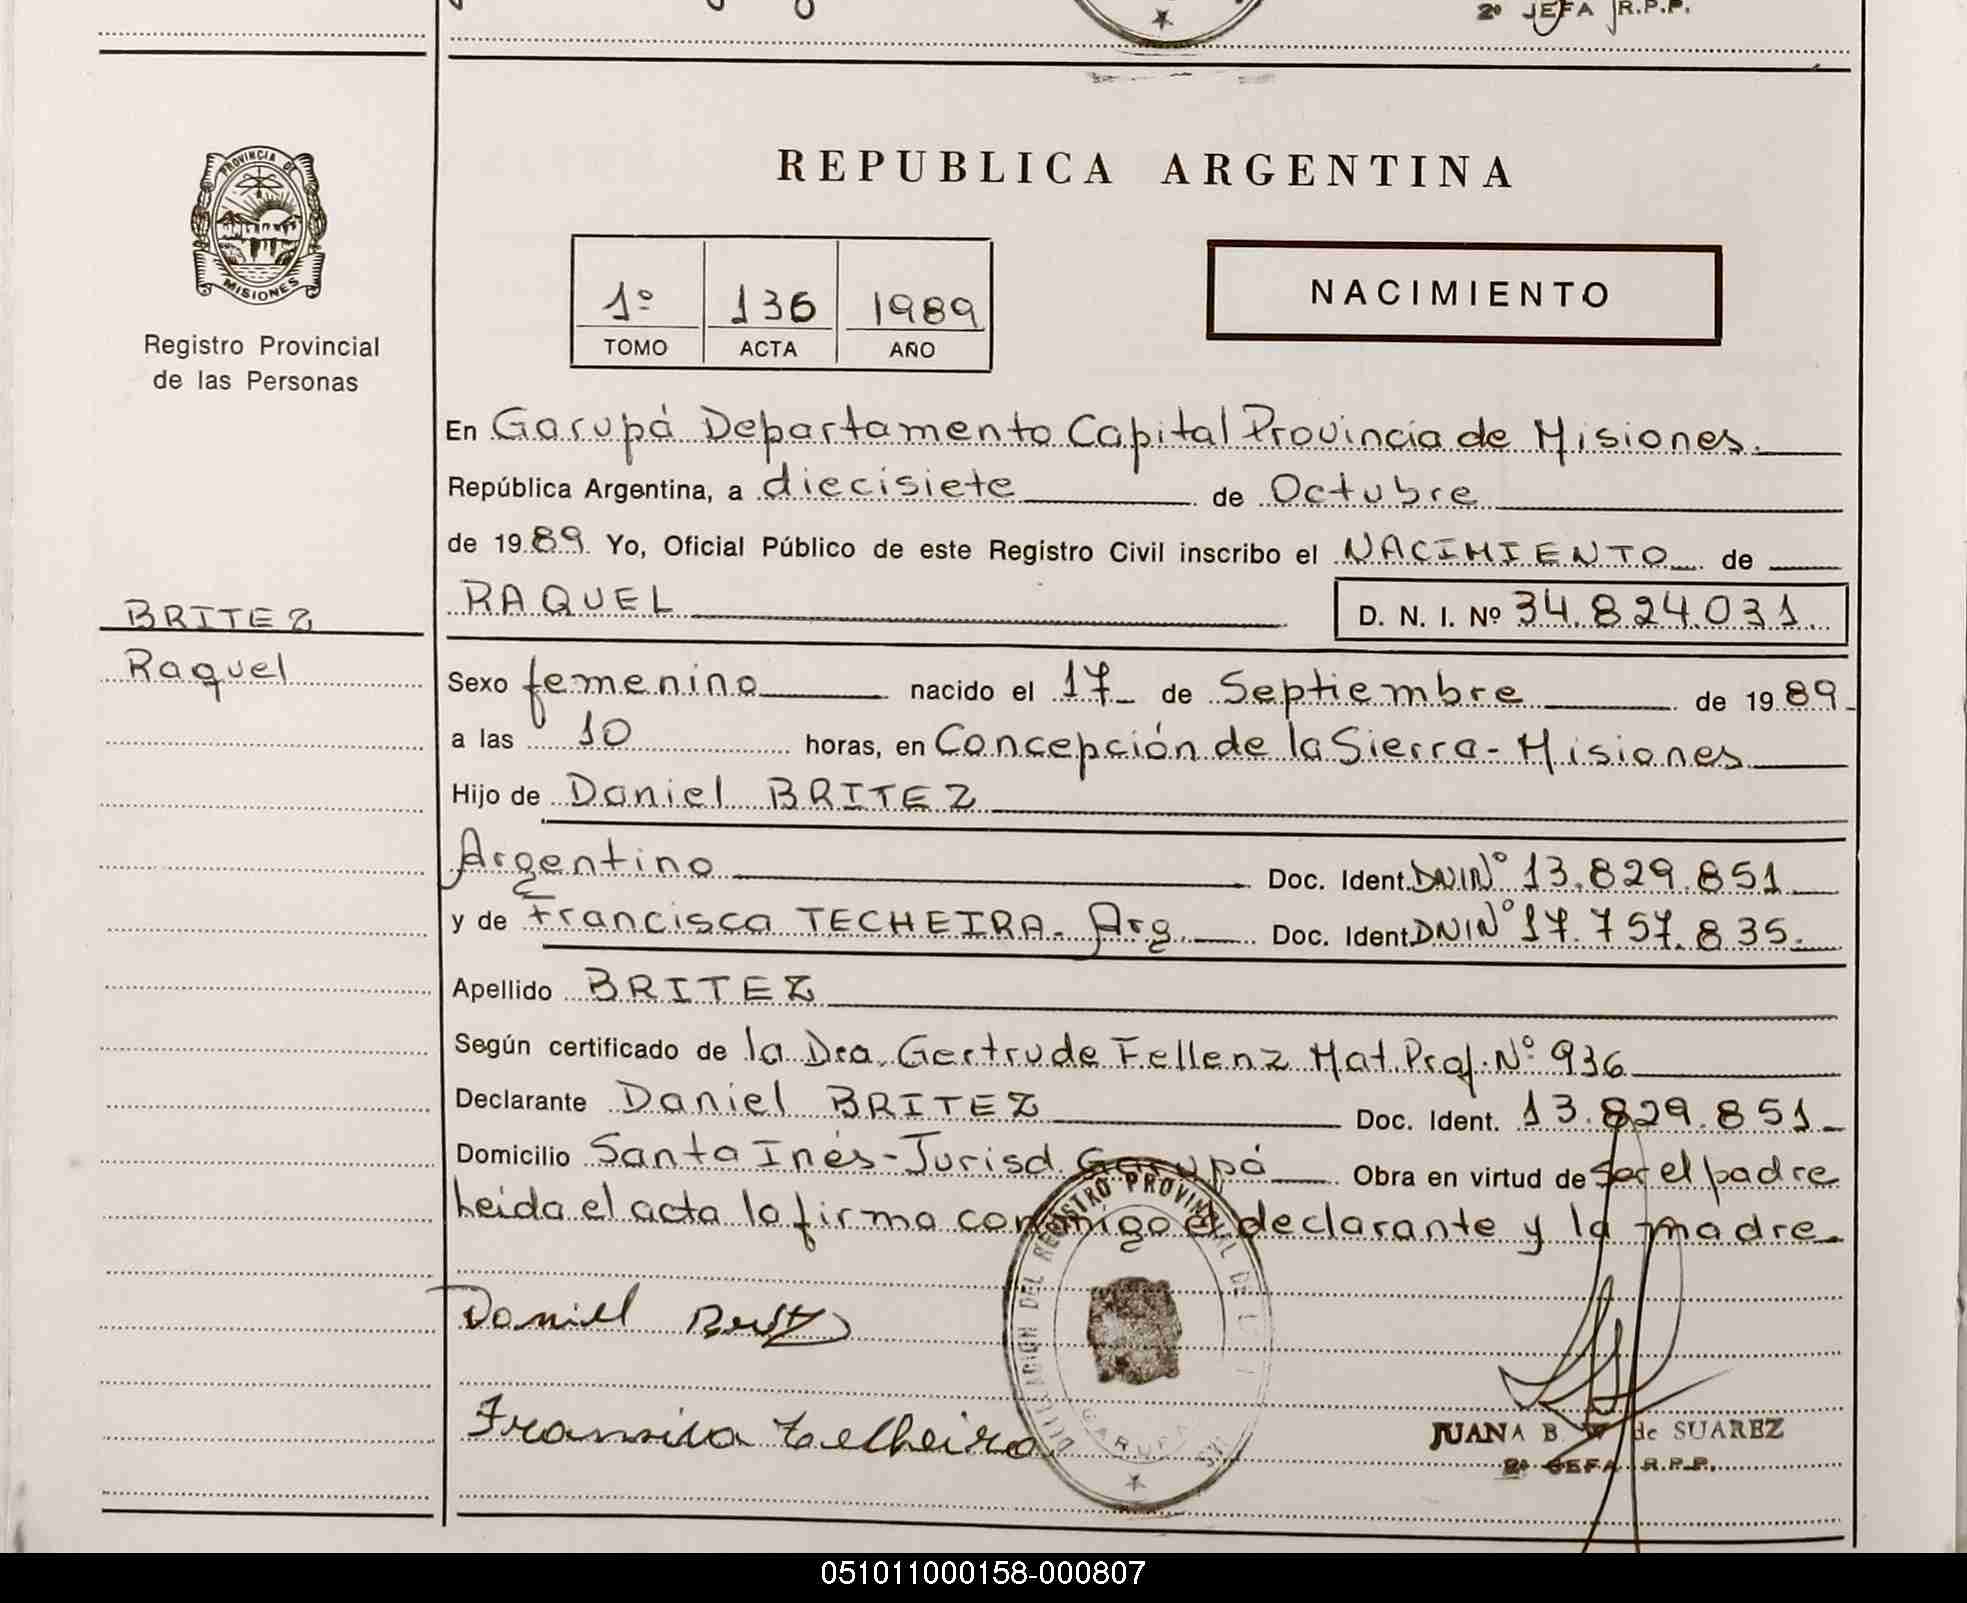 2º JEFA R.P.P.
PROVINCIA DE
MISIONES
Registro Provincial
de las Personas
REPUBLICA ARGENTINA
1º 136 1989
TOMO ACTA AÑO
NACIMIENTO
En Garupá Departamento Capital Provincia de Misiones.
República Argentina, a diecisiete de Octubre
de 1989. Yo, Oficial Público de este Registro Civil inscribo el NACIMIENTO de
BRITEZ
Raquel
RAQUEL D. N. I. Nº 34.824.031.
Sexo femenino nacido el 17 de Septiembre de 1989
a las 10 horas, en Concepción de la Sierra - Misiones
Hijo de Daniel BRITEZ
Argentino Doc. Ident. DNI Nº 13.829.851
y de Francisca TECHEIRA. Arg. Doc. Ident. DNI Nº 17.757.835.
Apellido BRITEZ
Según certificado de la Dra. Gertrude Fellenz Mat. Prof. Nº 936
Declarante Daniel BRITEZ Doc. Ident. 13.829.851
Domicilio Santa Inés - Jurisd. Garupá Obra en virtud de ser el padre
Leida el acta la firma conmigo el declarante y la madre.
DEL REGISTRO PROVINCIAL DE
GARUPA
Daniel
JUANA B. W de SUAREZ
2º JEFA R.P.P.
051011000158-000807